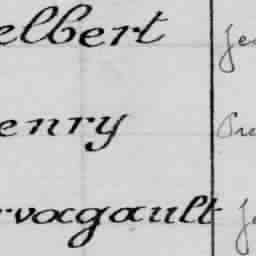 elbert
enry
rvagault